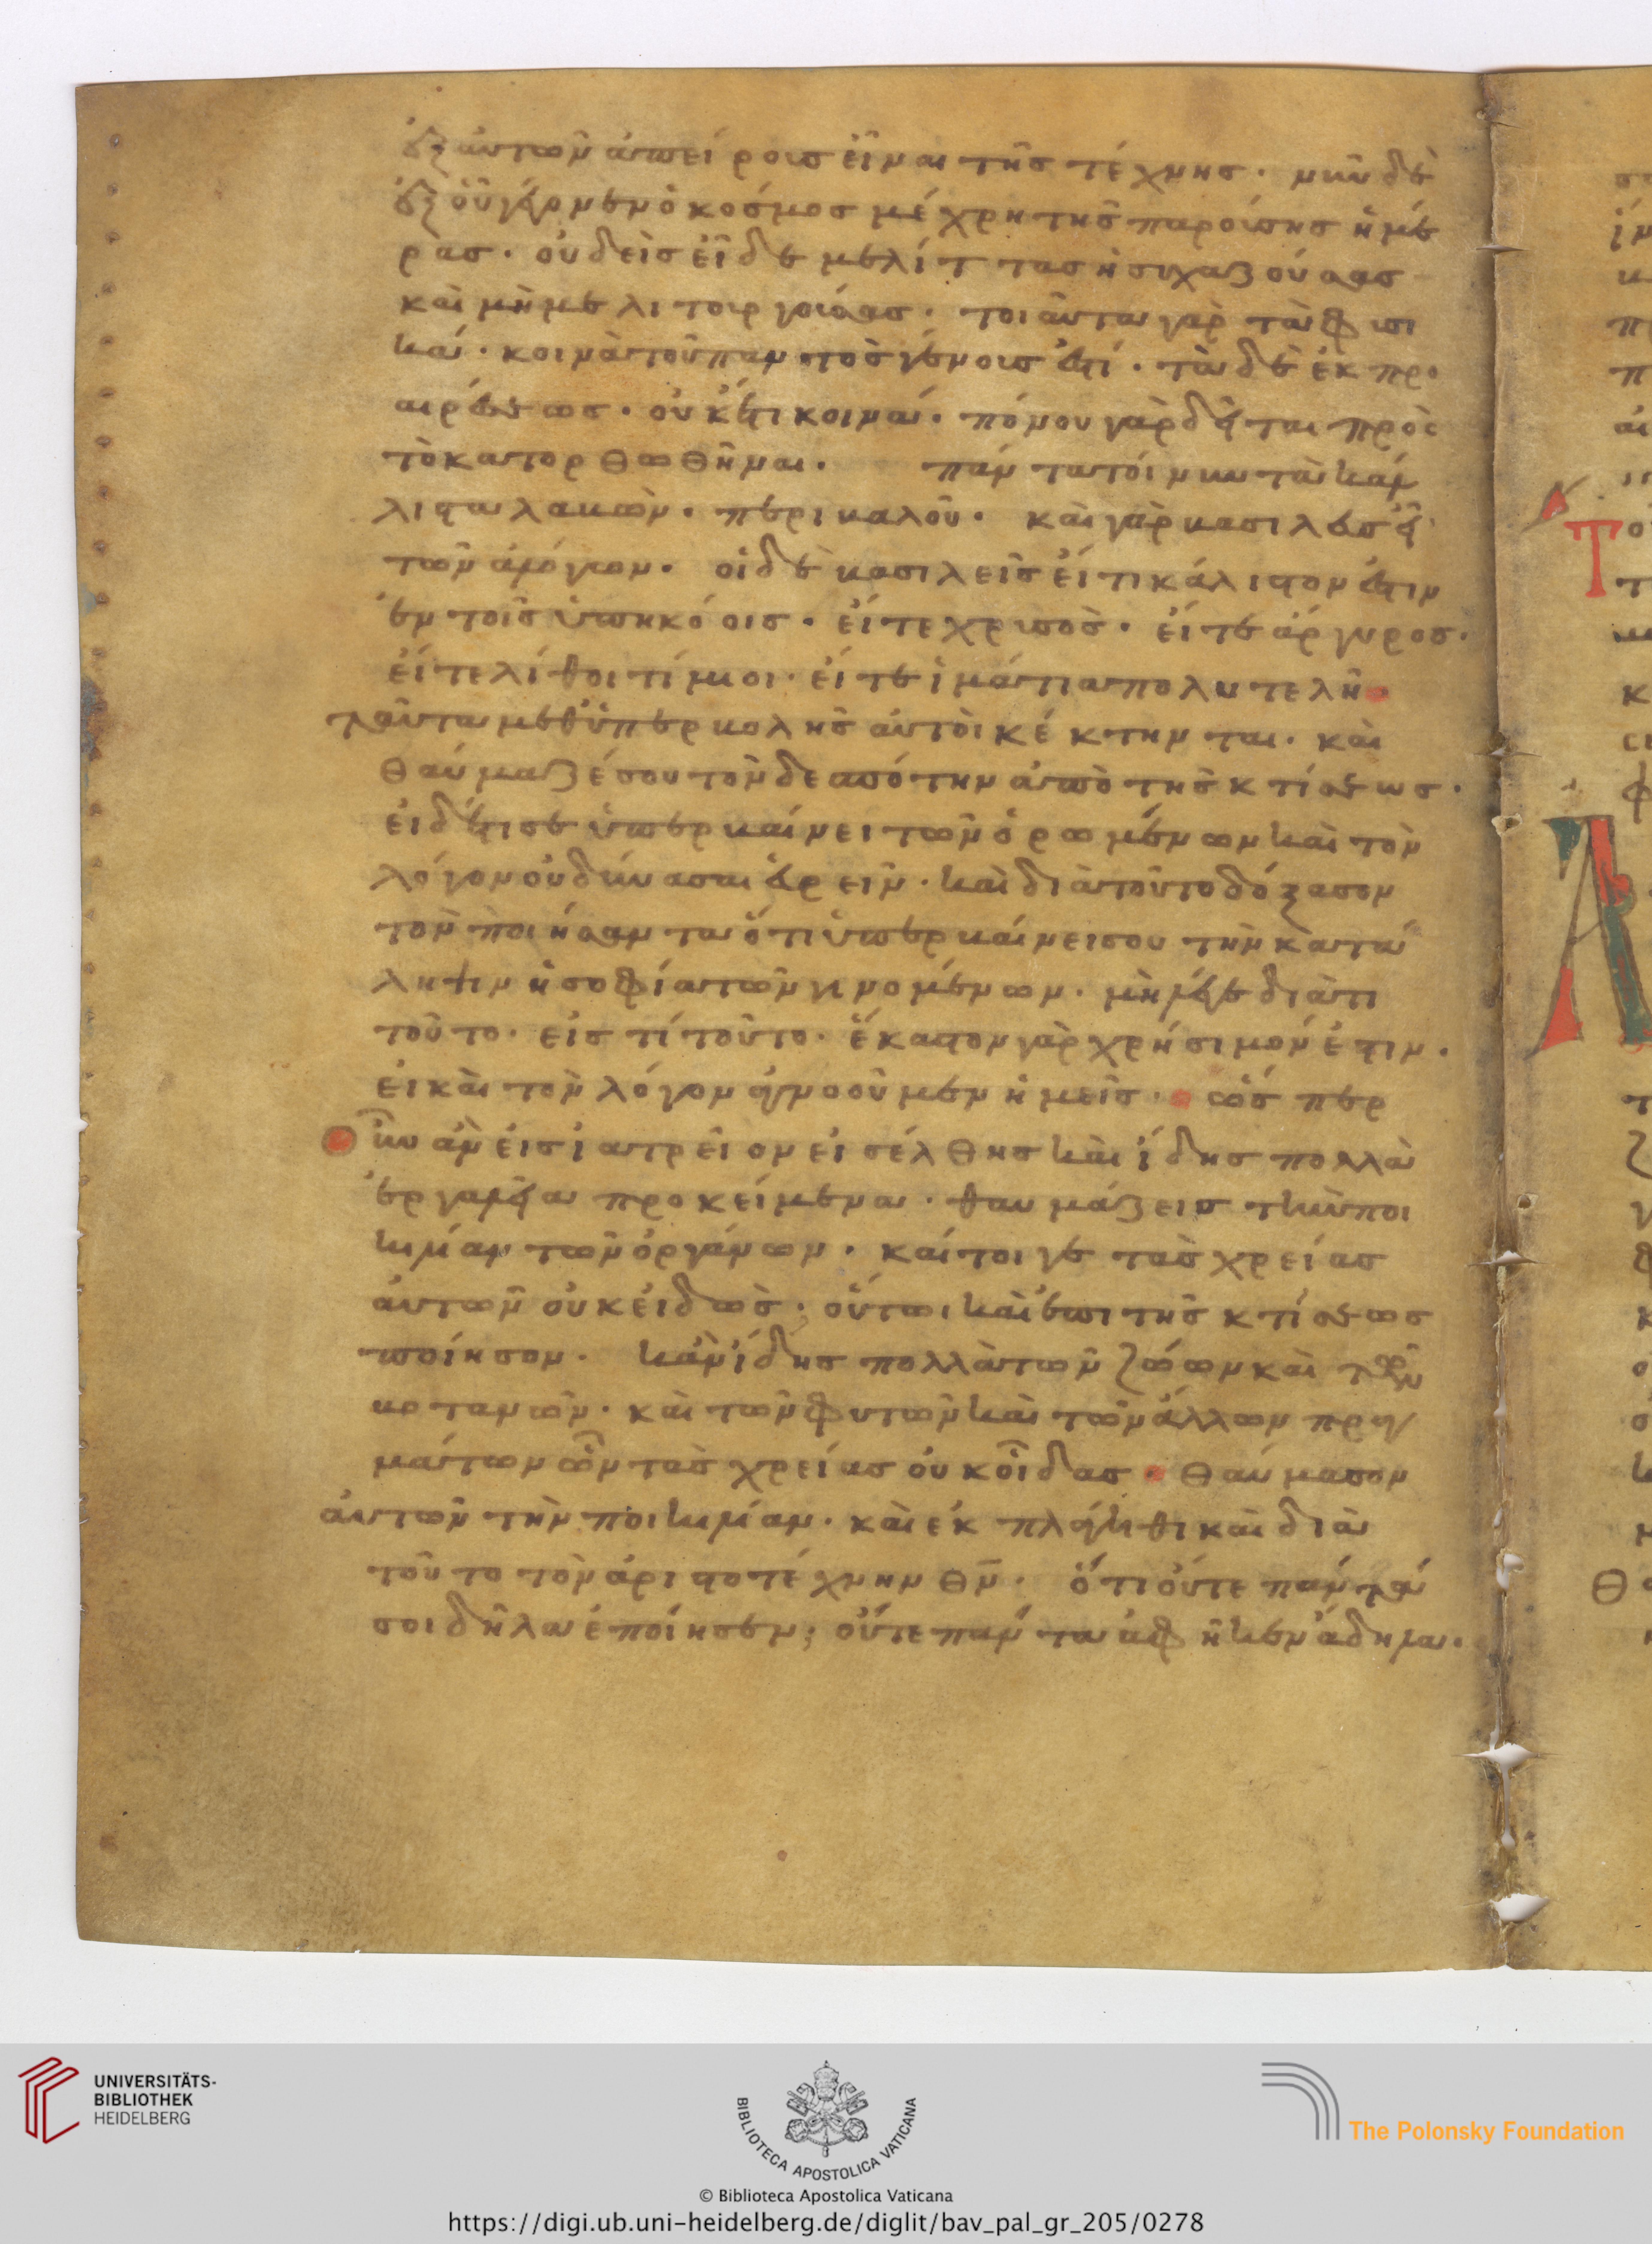 ἐξ αὐτῶν ἀπείρους εἶναι τῆς τέχνης· νῦν δὲ
ἐξ οὗ γέγονεν ὁ κόσμος μέχρη τῆς παρούσης ἡμέ
ρας· οὐδεὶς εἶδε μελίττας ἡσυχαζούσας
καὶ μὴ μελιτουργούσας· τοιαῦτα γὰρ τὰ φυσι
κά· κοινὰ τοῦ παντὸς γένους ἐστί· τὰ δὲ ἐκ προ
αιρέσεως· οὐκ ἔστι κοινά· πόνου γὰρ δεῖται πρὸς
τὸ κατορθωθῆναι· πάντα τοίνυν τὰ κάλ
λιστα λαβὼν· περιβαλοῦ· καὶ γὰρ βασιλεὺς εἶ
τῶν ἀλόγων· οἱ δὲ βασιλεῖς εἴ τι κάλιστον ἔστιν
ἐν τοῖς ὑπηκόοις· εἴτε χρυσὸς· εἴτε ἄργυρος·
εἴτε λίθοι τίμιοι· εἴτε ἱμάτια πολυτελῆ
ταῦτα μεθ' ὑπερβολῆς αὐτοὶ κέκτηνται· καὶ
θαύμαζέ σου τὸν δεσπότην ἀπὸ τῆς κτίσεως·
εἰ δέ τι σε ὑπερβαίνει τῶν ὁρωμένων καὶ τὸν
λόγον οὐ δύνασαι εὑρεῖν· καὶ διὰ τοῦτο δόξασον
τὸν ποιήσαντα ὅτι ὑπερβαίνει σου τὴν κατά
ληψιν ἡ σοφία τῶν γινομένων· μὴ λέγε διὰ τί
τοῦτο· εἰς τί τοῦτο· ἕκαστον γὰρ χρήσιμόν ἐστιν·
εἰ καὶ τὸν λόγον ἀγνοοῦμεν ἡμεῖς· ὥσπερ
οὖν ἂν εἰς ἰατρεῖον εἰσέλθης καὶ ἴδης πολλὰ
ἐργαλεῖα προκείμενα· θαυμάζεις τὴν ποι
κιλίαν τῶν ὀργάνων· καίτοι γε τὰς χρείας
αὐτῶν οὐκ εἰδὼς· οὕτω καὶ ἐπὶ τῆς κτίσεως
ποίησον· κἂν ἴδης πολλὰ τῶν ζώων καὶ τῶν
βοτανῶν· καὶ τῶν φυτῶν καὶ τῶν ἄλλων πραγ
μάτων ὧν τὰς χρείας οὐκ οἶδας· θαύμασον
αὐτῶν τὴν ποικιλίαν· καὶ ἐκπλάγηθι καὶ διὰ
τοῦτο τὸν ἀριστοτέχνην θν· ὅτι οὔτε πάντα
σοι δῆλα ἐποίησεν· οὔτε πάντα ἀφῆκεν ἄδηλα·
UNIVERSITÄTS-
BIBLIOTHEK
HEIDELBERG
BIBLIOTECA APOSTOLICA VATICANA
The Polonsky Foundation
© Biblioteca Apostolica Vaticana
https://digi.ub.uni-heidelberg.de/diglit/bav_pal_gr_205/0278